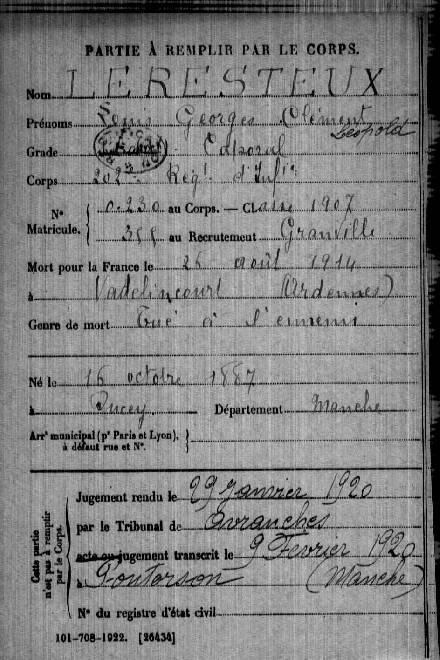 PARTIE À REMPLIR PAR LE CORPS.
Nom LERESTEUX
Prénoms Louis Georges Clément Léopold
Grade Caporal
Corps 202e Regt d'Infie
Nº Matricule. 0.230 au Corps. — Classe 1907
355 au Recrutement Granville
Mort pour la France le 26 août 1914
à Vadelincourt (Ardennes)
Genre de mort Tué à l'ennemi
Né le 16 octobre 1887
à Ducey Département Manche
Arrt municipal (pr Paris et Lyon),
à défaut rue et Nº.
Cette partie n'est pas à remplir par le Corps.
Jugement rendu le 29 Janvier 1920
par le Tribunal de Avranches
acte ou jugement transcrit le 9 Fevrier 1920
à Pontorson (Manche)
Nº du registre d'état civil
101-708-1922. [26434]